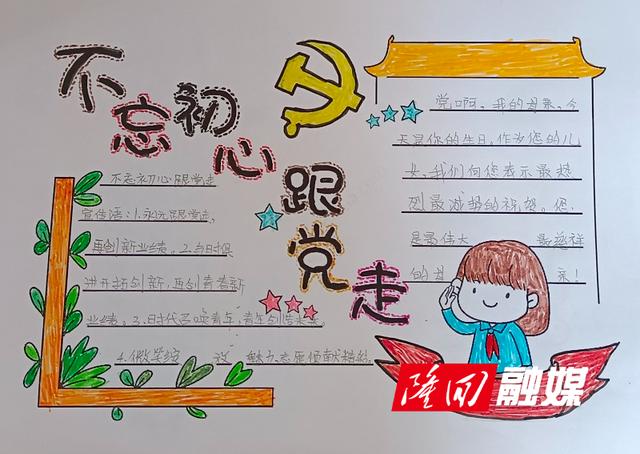 不忘初心
跟党走
不忘初心跟党走
宣传语:1.永远跟党走,
再创新业绩。2.与时俱
进开拓创新,再创青春新
业绩。3.时代召唤青年;青年创造未来。
4.微笑绽 这 魅力志愿奉献精彩。
党啊,我的母亲,今
天是你的生日,作为您的儿
女,我们向您表示最热
烈最诚挚的祝贺。您,
是最伟大 最慈祥
的母 亲!
隆回融媒